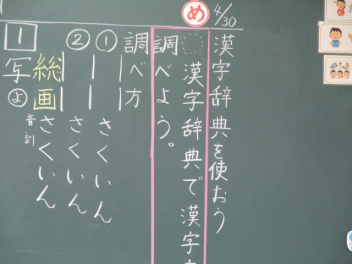 4/30
漢字辞典を使おう
め
漢字辞典で漢字を
調べよう。
調べ方
① さくいん
② さくいん
総画さくいん
1
写 よ 音訓